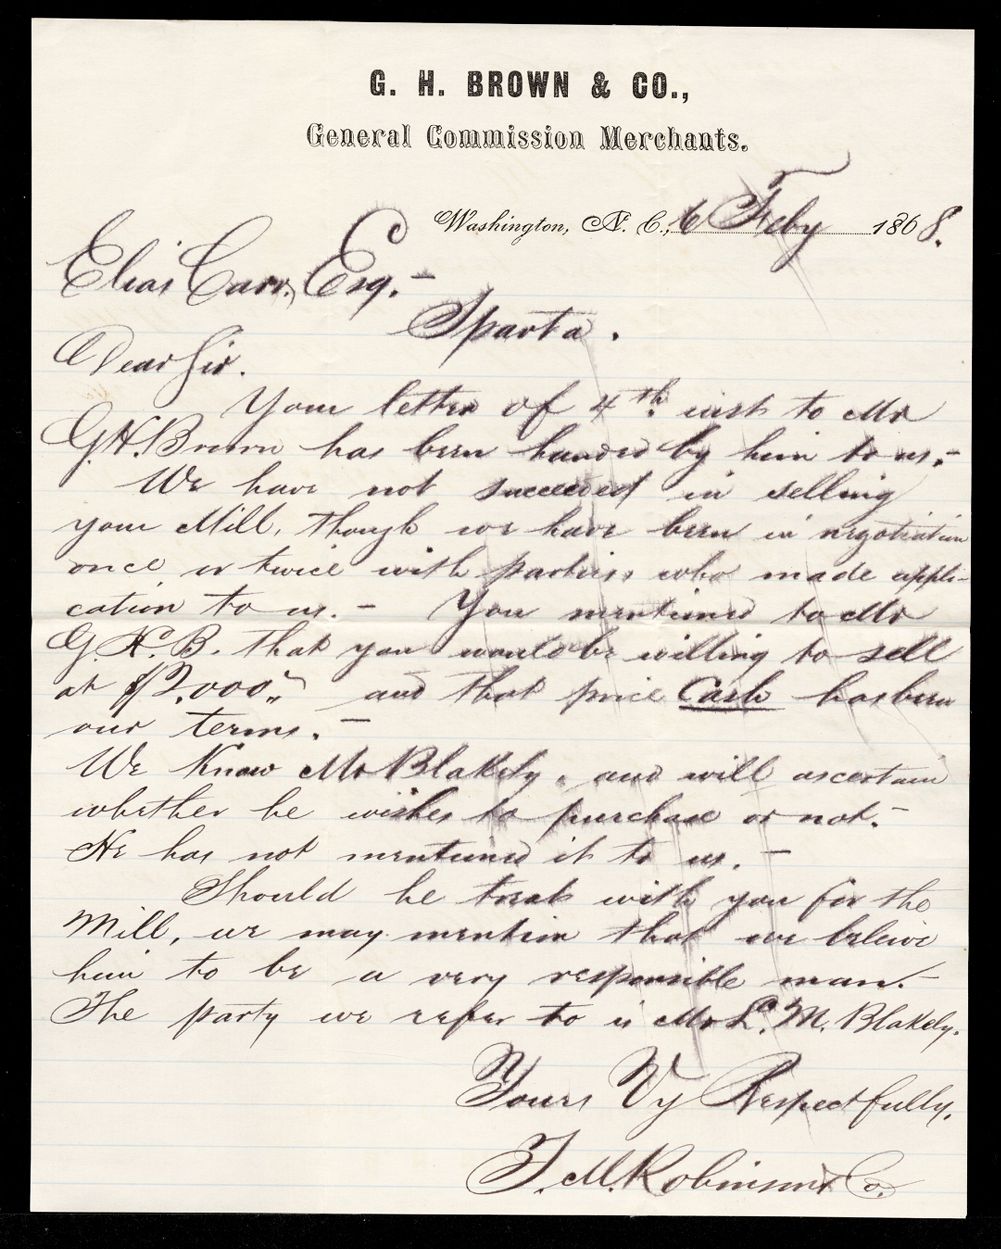 G. H. BROWN & CO.,
General Commission Merchants.
Washington, N. C., 6 Feby 1868.
Elias Carr, Esq. –
Sparta.
Dear Sir.
Your letter of 4th inst to Mr
G. H. Brown has been handed by him to us. –
We have not succeeded in selling
your Mill, though we have been in negotiation
once or twice with parties who made appli-
cation to us. – You mentioned to Mr
G. H. B. that you would be willing to sell
at $2,000 and that price Cash has been
our terms. –
We Know Mr Blakely, and will ascertain
whether he wishes to purchase or not. –
He has not mentioned it to us. –
Should he treat with you for the
Mill, we may mention that we beleive
him to be a very responsible man. –
The party we refer to is Mr M. Blakely.
Yours Vy Respectfully,
T. M. Robinson & Co.